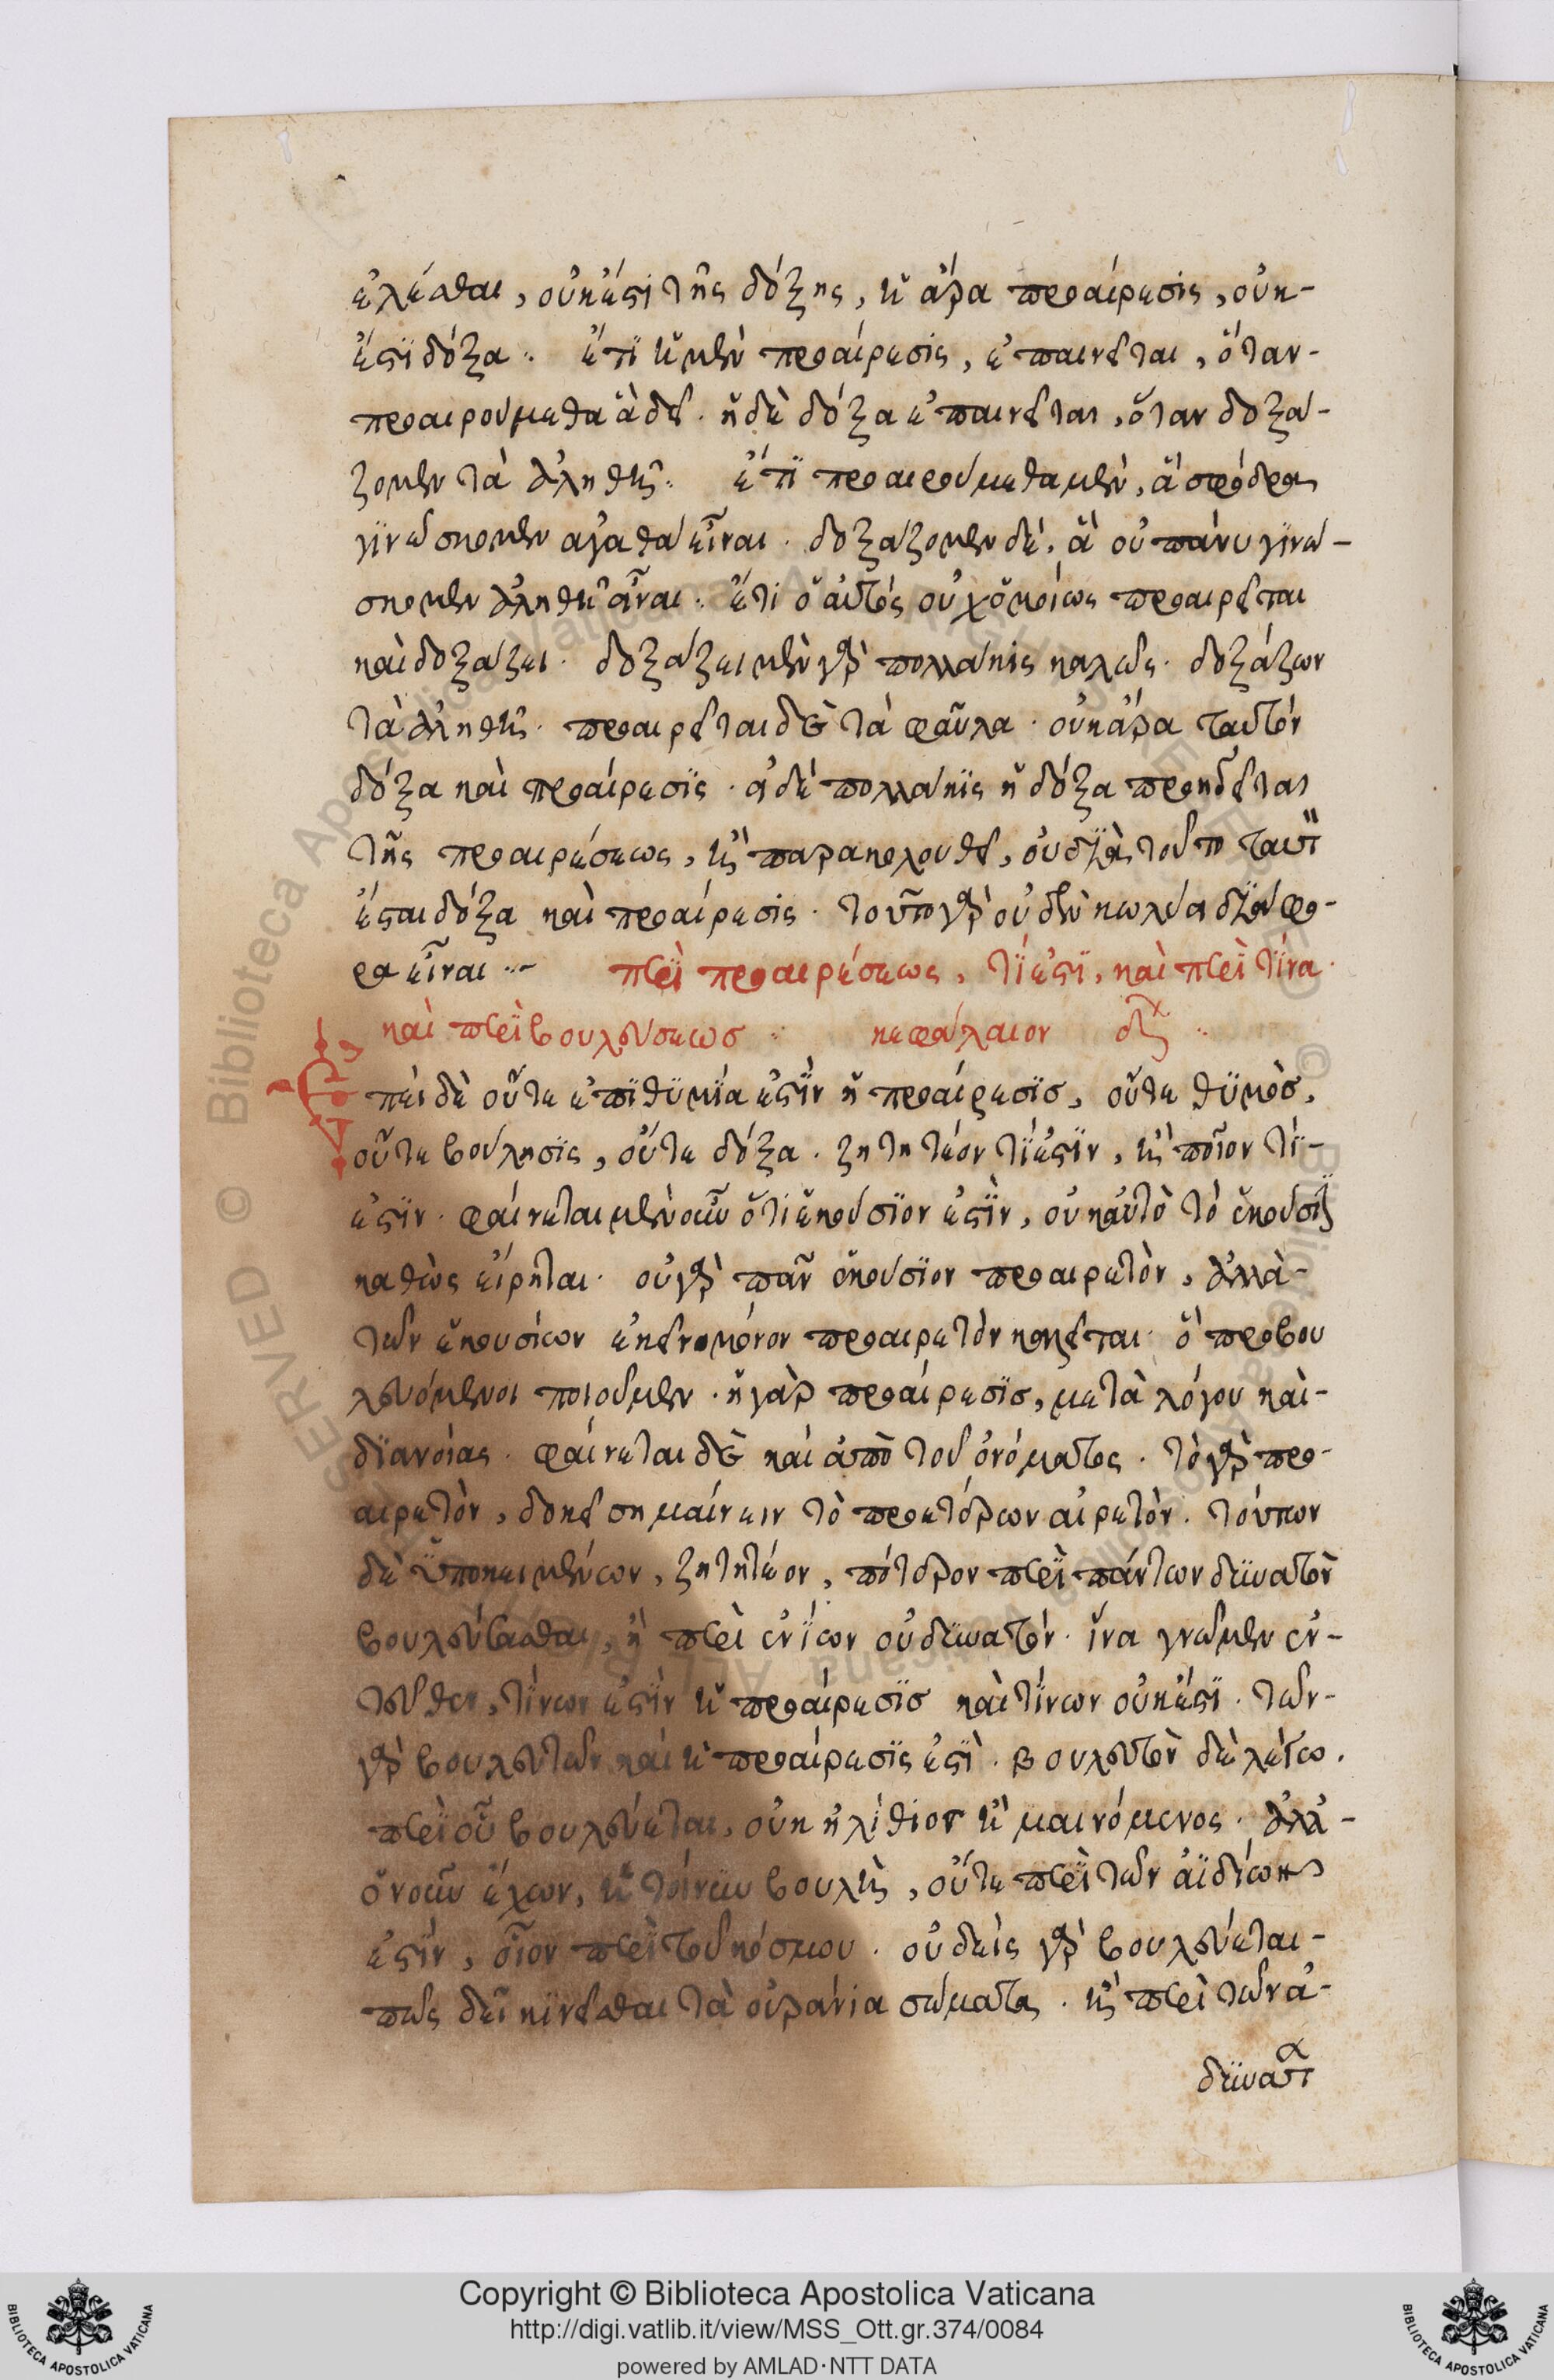 ἑλέσθαι, οὐκέστι τῆς δόξης, ἡ ἄρα προαίρεσις, οὐκ-
έστϊ δόξα. ἔτϊ ἡ μὲν προαίρεσις, ἐπαινεῖται, ὅταν-
προαιρούμεθα ἃ δεῖ. ἡ δὲ δόξα ἐπαινεῖται, ὅταν δοξά-
ζομεν τὰ ἀληθῆ. ἔτϊ προαιρούμεθα μὲν, ἃ σφόδρα
γϊνώσκομεν αγαθὰ εἶναι. δοξάζομεν δὲ, ἃ οὐ πάνυ γϊνώ-
σκομεν ἀληθῆ εἶναι. ἔτι ὁ αὐτός οὐχ ὁμοίως προαιρεῖται
καὶ δοξάζει. δοξάζει μὲν γὰρ πολλάκις καλῶς. δοξάζων
τὰ ἀληθῆ. προαιρεῖται δὲ τὰ φαῦλα. οὐκ ἄρα ταυτόν
δόξα καὶ προαίρεσϊς. εἰ δέ πολλάκϊς ἡ δόξα προηγεῖται
τῆς προαιρέσεως, ἢ παρακολουθεῖ, οὐ διὰ τοῦτο ταυτὸ
έσται δόξα καὶ προαίρεσις. τοῦτο γὰρ οὐδὲν κωλύει διάφο-
ρα εἶναι..~ περὶ προαιρέσεως, τί ἐστϊ, καὶ περὶ τίνα.
καὶ περὶ βουλεύσεως κεφάλαιον
Επειδὲ οὔτε ἐπϊθϋμία ἐστϊν ἡ προαίρεσϊς, οὔτε θϋμὸς,
οὔτε βούλησϊς, οὔτε δόξα. ζητητέον τί ἐστϊν, ἢ ποῖον τί-
ἐστϊν. φαίνεται μὲν οὖν ὅτι ἑκούσϊον ἐστϊν, οὐκ αὐτὸ τὸ ἑκούσιον
καθὼς εἴρηται. οὐ γὰρ πᾶν ἑκούσϊον προαιρετὸν, ἀλλὰ-
τῶν ἑκουσίων ἐκεῖνο μόνον προαιρετὸν καλεῖται. ὃ προβου
λευόμενοι ποιοῦμεν. ἡ γὰρ προαίρεσϊς, μετὰ λόγου καὶ-
διανοίας. φαίνεται δὲ καὶ ἀπὸ τοῦ ὀνόματος. τὸ γὰρ προ-
αιρετὸν, δοκεῖ σημαίνειν τὸ προετέρων αἱρετόν. τούτων
δὲ ὑποκειμένων, ζητητέον, πότερον περὶ πάντων δϋνατὸν
βουλεύεσθαι, ἢ περὶ ἐνίων οὐ δϋνατόν. ἵνα γνῶμεν ἐν-
τεῦθεν, τίνων ἐστϊν ἡ προαίρεσϊς καὶ τίνων οὐκέστϊ. τῶν-
γὰρ βουλευτῶν καὶ ἡ προαίρεσϊς ἐστϊ. βουλευτὸν δὲ λέγω.
περὶ οὗ βουλεύεται, οὐκ ἠλίθιος ἢ μαινόμενος. ἀλλ᾽-
ὁ νοῦν ἔχων, ἡ τοίνϋν βουλὴ, οὔτε περὶ τῶν ἀϊδίων
ἐστίν, οἷον περὶ τοῦ κόσμου. οὐδεὶς γὰρ βουλεύεται-
πῶς δεῖ κϊνεῖσθαι τὰ οὐράνια σώματα. ἢ περὶ τῶν ἀ-
δϋνατ
Copyright © Biblioteca Apostolica Vaticana
http://digi.vatlib.it/view/MSS_Ott.gr.374/0084
powered by AMLAD·NTT DATA